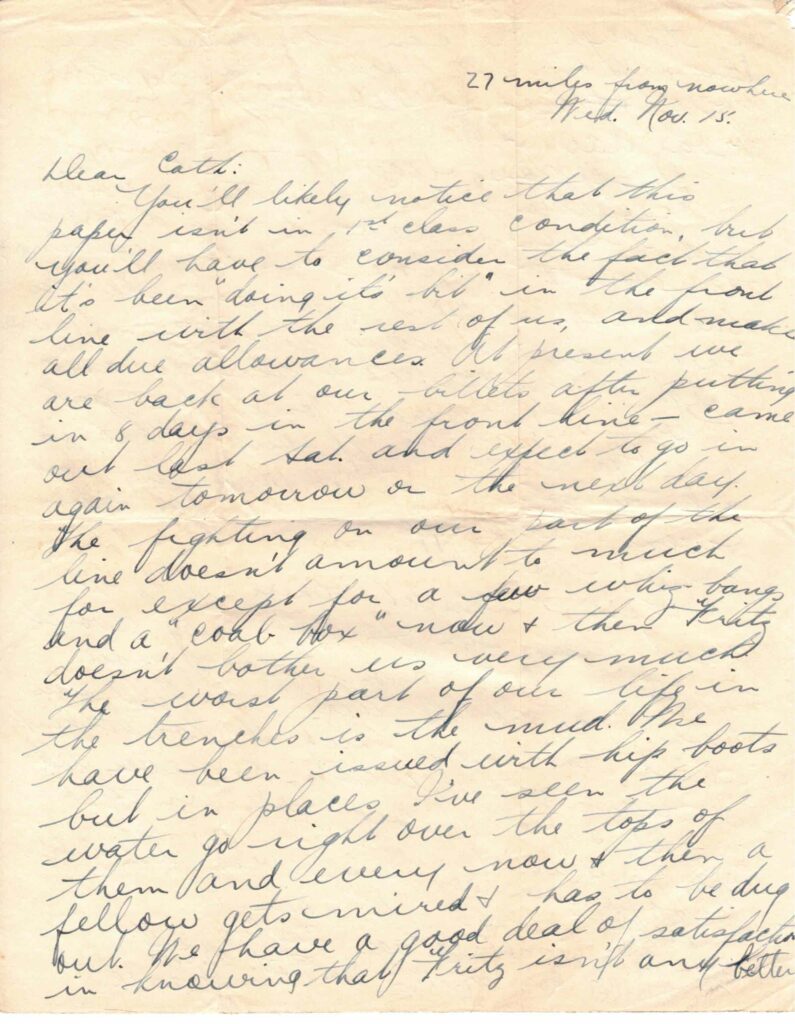 27 miles from nowhere
Wed. Nov. 15.
Dear Cath:
You'll likely notice that this
paper isn't in 1st class condition, but
you'll have to consider the fact that
it's been "doing it's bit" in the front
line with the rest of us, and make
all due allowances. At present we
are back at our billets after putting
in 8 days in the front line – came
out last Sat. and expect to go in
again tomorrow or the next day.
The fighting on our part of the
line doesn't amount to much
for except for a few whiz-bangs
and a "coal box" now & then "Fritz"
doesn't bother us very much.
The worst part of our life in
the trenches is the mud. We
have been issued with hip boots
but in places I've seen the
water go right over the tops of
them and every now & then a
fellow gets mired & has to be dug
out. We have a good deal of satisfaction
in knowing that "Fritz" isn't any better